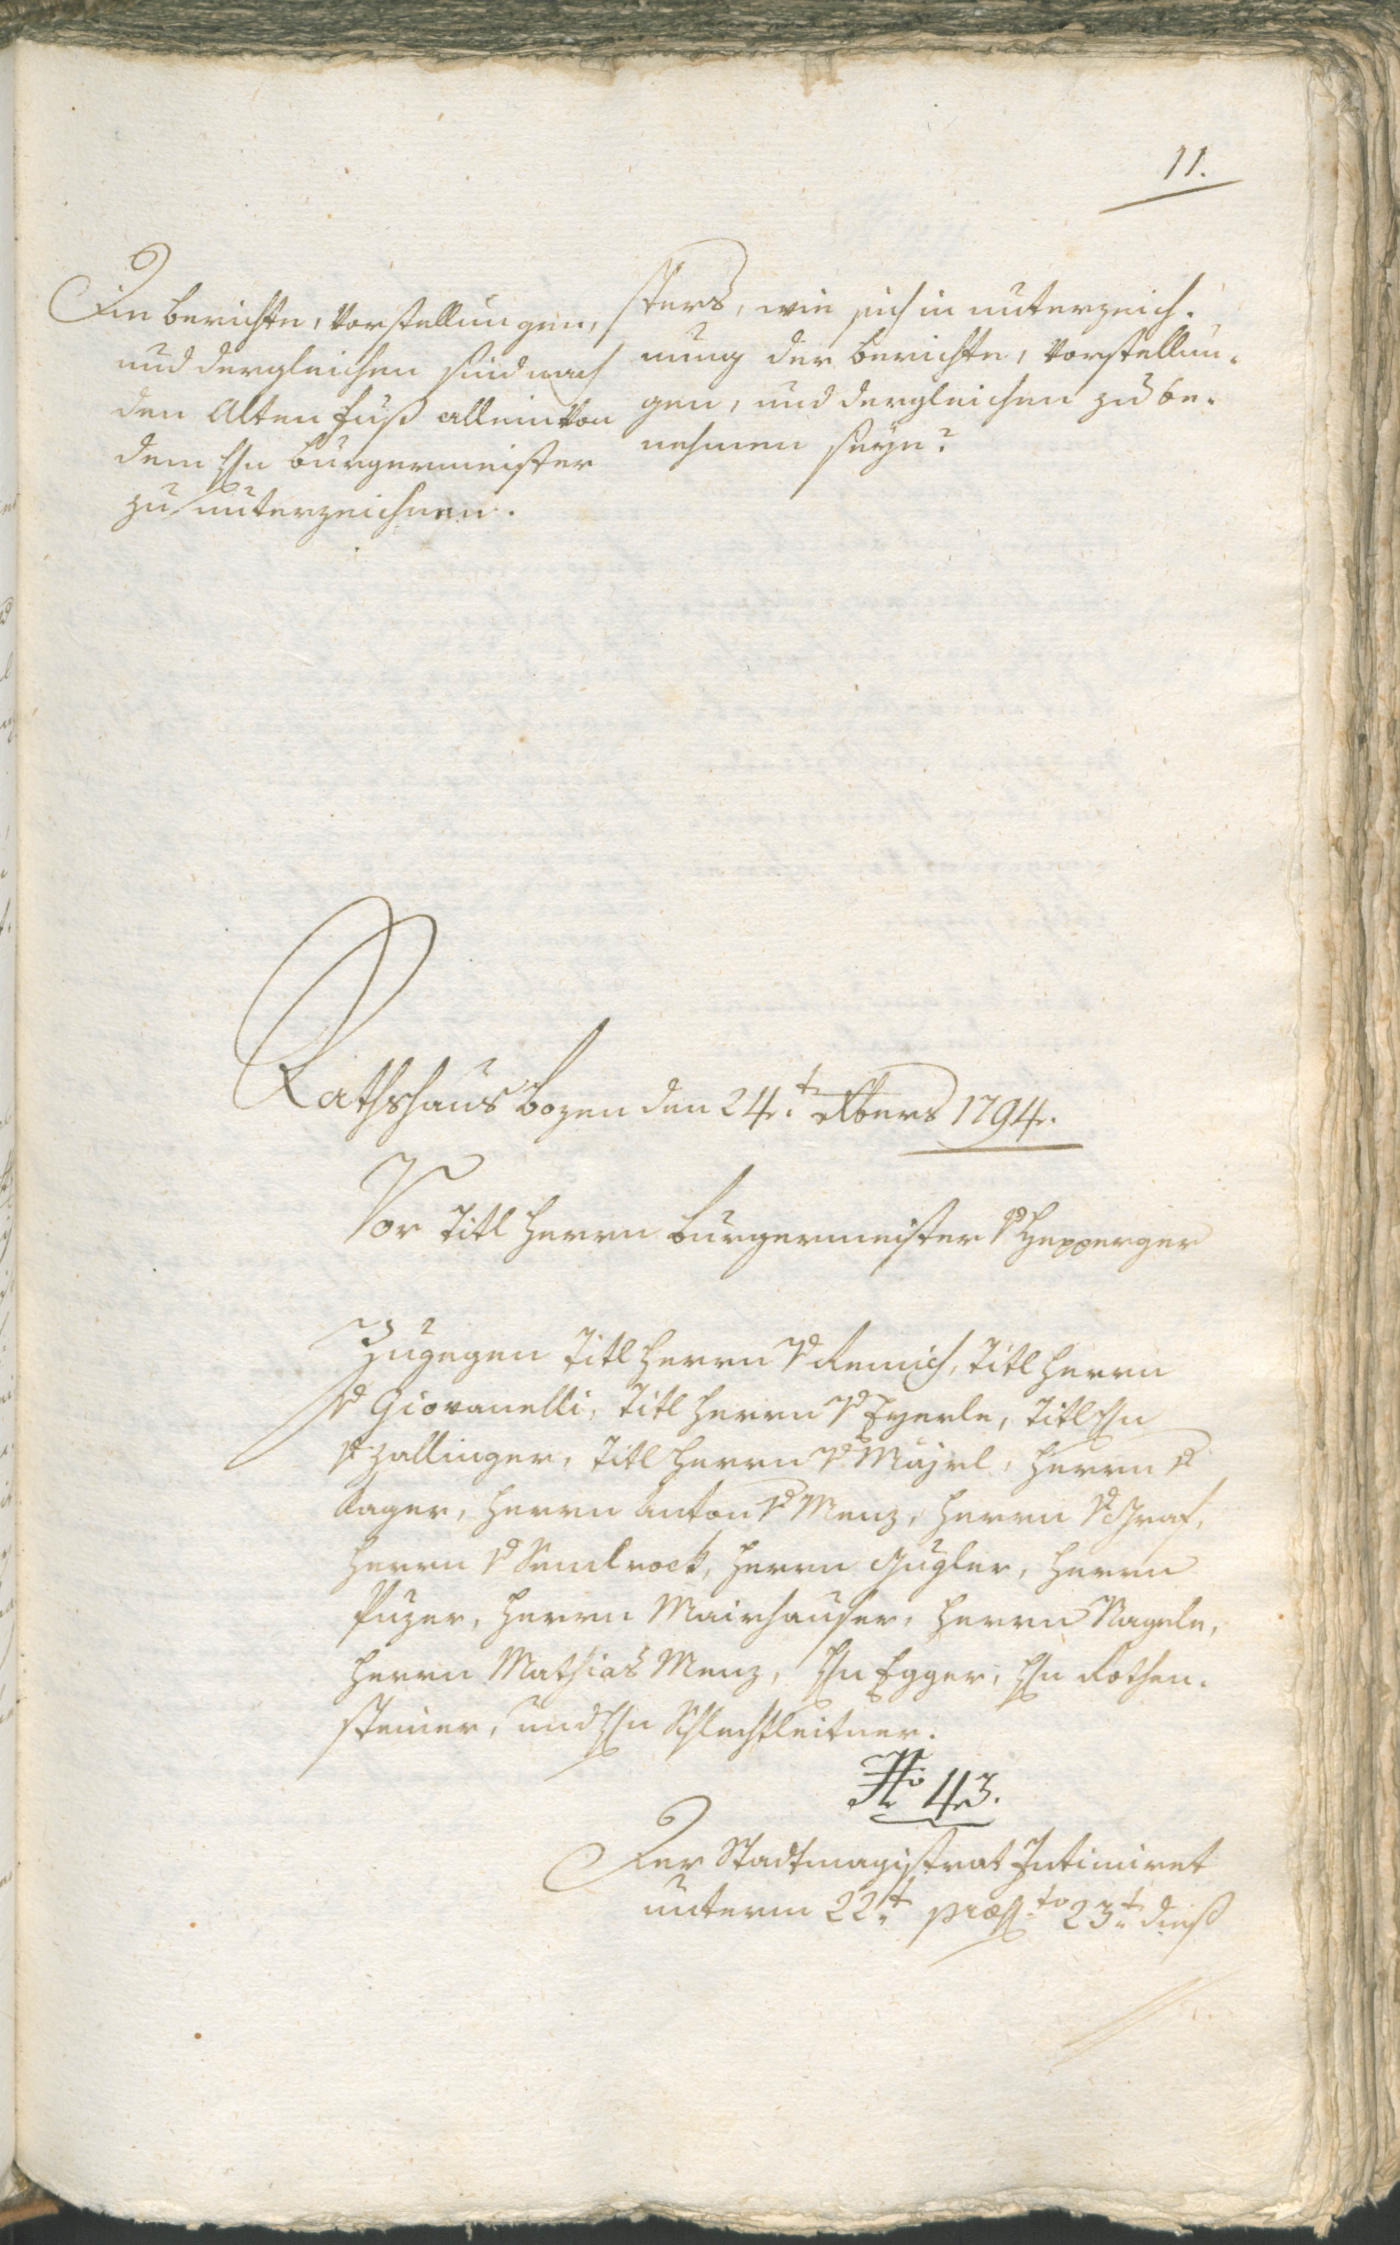 11.
Die berichte, Vorstellungen,
und dergleichen sind nach
den Alten fuß allein Von
dem Hn burgermeister
zu unterzeichnen.
sters, wie sich in unterzeich-
nung der berichte, Vorstellun-
gen, und dergleichen zu be-
nehmen seÿe?
Rathshaus bozen den 24t. Xbers 1794.
Vor Titl herrn burgermeister v Hepperger
Zugegen Titl herrn v Remich, Titl herrn
v Giovanelli, Titl herrn v Eyerle, Titl Hn
v Zallinger, Titl herrn v Maÿrl, herrn v
Kager, herrn Anton v Menz, herrn v Graf,
herrn v Semlrock, herrn Gugler, herrn
Puzer, herrn Mairhauser, herrn Nagele,
herrn Mathias Menz, Hn Egger, Hn Rothen-
steiner, und Hn Schlechtleitner.
No 43.
Der Stadtmagistrat Intimiret
unterm 22t præsto 23t dieß